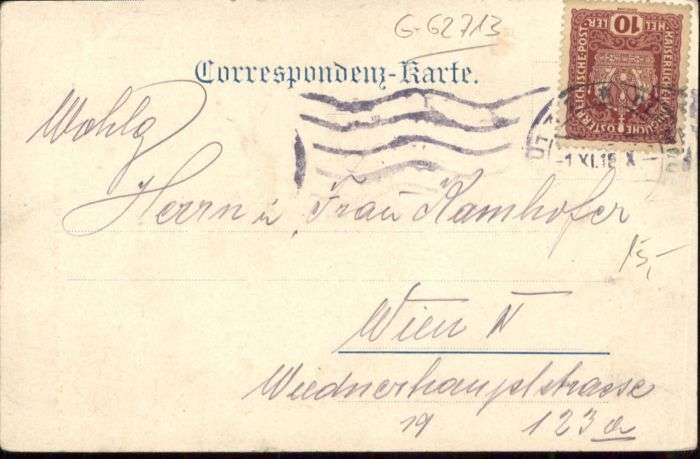 G-62713
Correspondenz-Karte.
Wohlg
Herrn u Frau Kamhofer
15,-
Wien IV
Wiednerhauptstrasse
19 123a
10
HELLER
KAISERLICHE KÖNIGLICHE ÖSTERREICHISCHE POST
-1 XI.18 X-